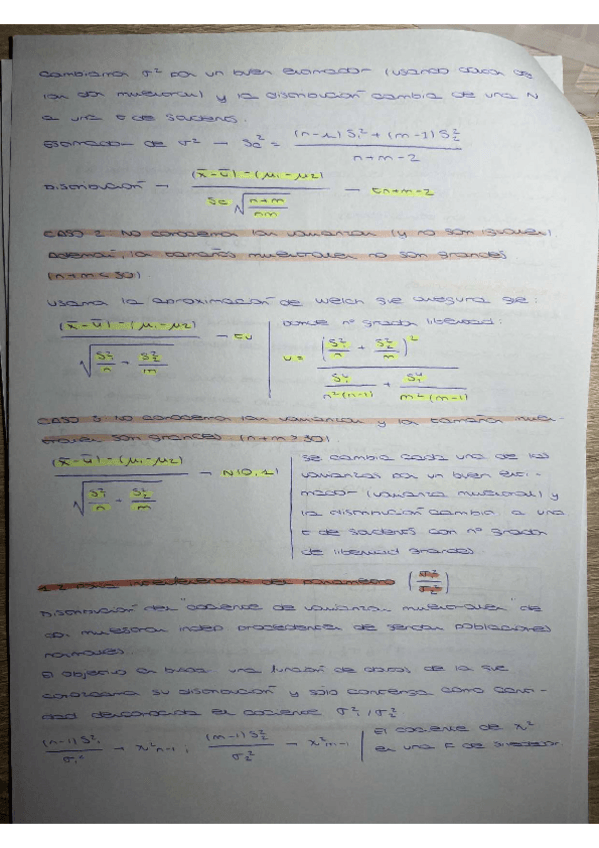 Cambiamos σ² por un buen estimador (usando datos de
las dos muestras) y la distribución cambia de una N
a una t de Student.
Estimador de σ² → Sc² = (n-1)S₁² + (m-1)S₂² / n+m-2
Distribución → (x̄-ū) - (μ₁-μ₂) / Sc √(n+m / nm) → tn+m-2
CASO 2. No conocemos las varianzas (y no son iguales).
Además, los tamaños muestrales no son grandes
(n+m < 30).
Usamos la aproximación de Welch que asegura que:
(x̄-ū) - (μ₁-μ₂) / √(S₁²/n + S₂²/m) → tν
donde nº grados libertad:
ν = (S₁²/n + S₂²/m)² / S₁⁴/n²(n-1) + S₂⁴/m²(m-1)
CASO 3. No conocemos las varianzas y los tamaños mues-
trales son grandes (n+m > 30).
(x̄-ū) - (μ₁-μ₂) / √(S₁²/n + S₂²/m) → N(0,1)
Se cambia cada una de las
varianzas por un buen esti-
mador (varianza muestral) y
la distribución cambia a una
t de Student con nº grados
de libertad grandes.
del parámetro (σ₁²/σ₂²)
Distribución del "cociente de varianzas muestrales" de
dos muestras indep. procedentes de sendas poblaciones
normales.
El objetivo es buscar una función de datos, de la que
conozcamos su distribución y sólo contenga como canti-
dad desconocida el cociente σ₁²/σ₂²
(n-1)S₁² / σ₁² → χ²n-1 , (m-1)S₂² / σ₂² → χ²m-1
El cociente de χ²
es una F de Snedecor.